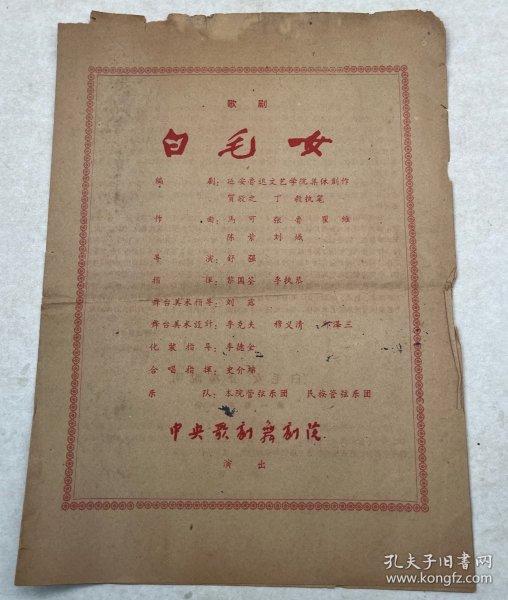 歌剧
白毛女
编剧：延安鲁迅文艺学院集体創作
賀敬之 丁毅执笔
作曲：馬可 张鲁 瞿维
陈紫 刘炽
导演：舒强
指揮：黎国荃 李执恭
舞台美术指导：刘露
舞台美术設計：李克夫 穆义清
化装指导：李德全
合唱指揮：史介绵
乐队：本院管弦乐团 民族管弦乐团
中央歌剧舞剧院
演出
孔夫子旧书网
www.kongfz.com